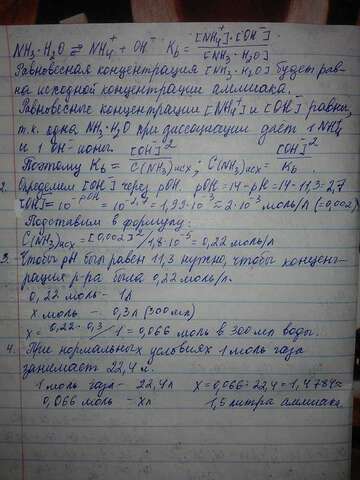 [NH₄⁺]·[OH⁻]
NH₃·H₂O ⇄ NH₄⁺ + OH⁻ Kb = ─────
[NH₃·H₂O]
Равновесная концентрация [NH₃·H₂O] будет рав-
на исходной концентрации аммиака.
Равновесные концентрации [NH₄⁺] и [OH⁻] равны,
т.к. одна NH₃·H₂O при диссоциации дает 1 NH₄⁺
и 1 OH⁻ ионы.
Поэтому Kb = [OH⁻]²/C(NH₃)исх; C(NH₃)исх = [OH⁻]²/Kb.
2. Определяем [OH⁻] через pOH. pOH = 14 - pH = 14 - 11,3 = 2,7
[OH⁻] = 10^-pOH = 10^-2,7 = 1,99·10⁻³ = 2·10⁻³ моль/л (=0,002)
Подставим в формулу:
C(NH₃)исх = [0,002]²/1,8·10⁻⁵ = 0,22 моль/л
3. Чтобы pH был равен 11,3 нужно, чтобы концент-
рация р-ра была 0,22 моль/л.
0,22 моль - 1л
x моль - 0,3 л (300 мл)
x = 0,22·0,3/1 = 0,066 моль в 300 мл воды.
4. При нормальных условиях 1 моль газа
занимает 22,4 л.
1 моль газа - 22,4л x = 0,066·22,4 = 1,4784≈
0,066 моль - xл 1,5 литра аммиака